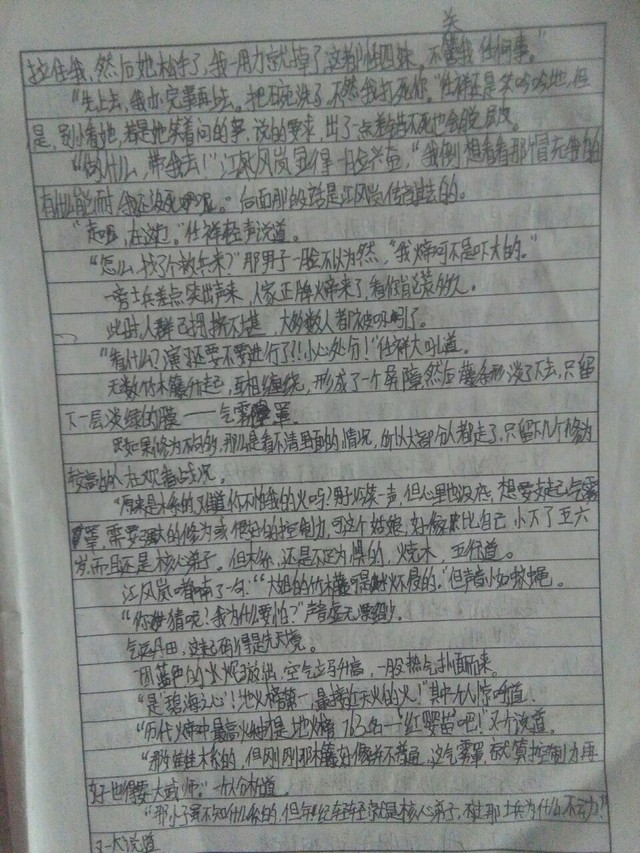 关
拉住我,然后她松手了,我一用力就掉了,这都怪四妹,不我任何事。”
“先上去,我办完事再上去。把碗洗了,不然我打死你。”任祥还是笑吟吟地,但
是,别小看她,若是她笑着问的事,说的要求,出了一点差错不死也会脱层皮。
“做什么,带我去!”江风岚显得一脸兴奋,“我倒想看看那个冒充我的
有什么能耐,我还没死呢。”后面那段话是江风岚传音过去的。
“走吧,在这边。”任祥轻声说道。
“怎么,找了个救兵来?”那男子一脸不以为然,“我炜可不是吓大的。”
一旁士兵差点笑出声来,人家正牌炜来了,看你肖能装多久。
此时人群已拥挤不堪,大多数人都被吸引了。
“看什么?演练还要不要进行了!!小心处分!”任祥大吼道。
无数竹木藤升起,互相缠绕,形成了一个屏障,然后藤条形淡了下去,只留
下一层淡绿的膜——气雾罩。
如果修为不高的,那么是看不清里面的情况,所以大部分人都走了,只留下几个修为
较高的人在观看战况。
“原来是木系的,难道你不怕我的火吗?”男子佯装一声,但心里也没底,想要支起气雾
罩,需要强大的修为或很好的控制力,可这个姑娘,好像比自己小了五六
岁,而且还是核心弟子。但木系,还是不足为惧的,火烧木,五行道。
江风岚喃喃了一句:“大姐的竹木藤可是水火不侵的。”但声音小如蚊蝇。
“你猜呢?我为什么要怕?”声音虚无缥缈。
气运丹田,这起码得是先天境。
一团蓝色的火焰放出,空气立马升高,一股热气扑面而来。
“是‘碧海之心’!地火榜第一,最接近天火的火!”其中六人惊呼道。
“历代炜中最高火种才是地火榜763名——‘红婴苗’吧!”又六说道。
“那姓任木系的,但刚刚那木藤好像并不普通,这气雾罩,就算控制力再
好也得要大武师。”一六分析道。
“那小子虽不知什么系的,但年纪轻轻就是核心弟子,不过那士兵为什么不动?”
又一六说道